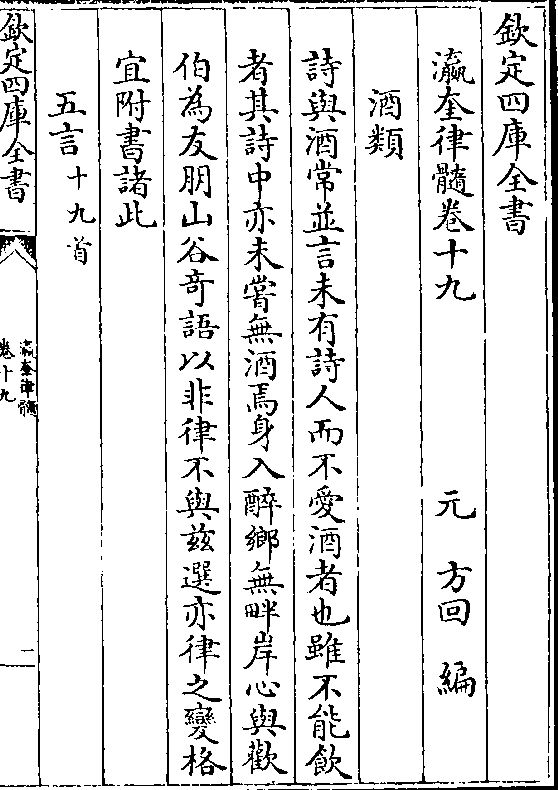 欽定四庫全書
瀛奎律髓卷十九 元 方回 編
酒類
詩與酒常並言未有詩人而不愛酒者也雖不能飲
者其詩中亦未嘗無酒焉身入醉鄉無畔岸心與歡
伯為友朋山谷竒語以非律不與兹選亦律之變格
宜附書諸此
五言十九首
欽定四庫全書
瀛奎律髓
卷十九
一